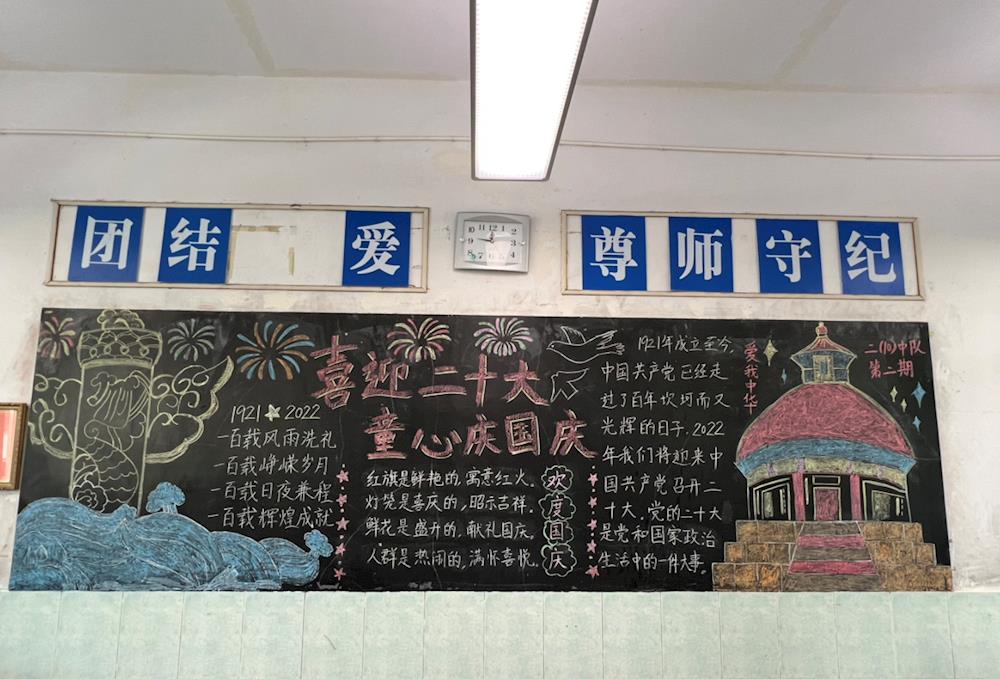 团结 爱
尊师守纪
喜迎二十大
童心庆国庆
1921 2022
一百载风雨洗礼
一百载峥嵘岁月
一百载日夜兼程
一百载辉煌成就
红旗是鲜艳的,寓意红火。
灯笼是喜庆的,昭示吉祥。
鲜花是盛开的,献礼国庆。
人群是热闹的,满怀喜悦。
欢度国庆
1921年成立至今,
中国共产党已经走
过了百年坎坷而又
光辉的日子.2022
年我们将迎来中
国共产党召开二
十大。党的二十大
是党和国家政治
生活中的一件大事。
爱我中华
二(10)中队
第二期